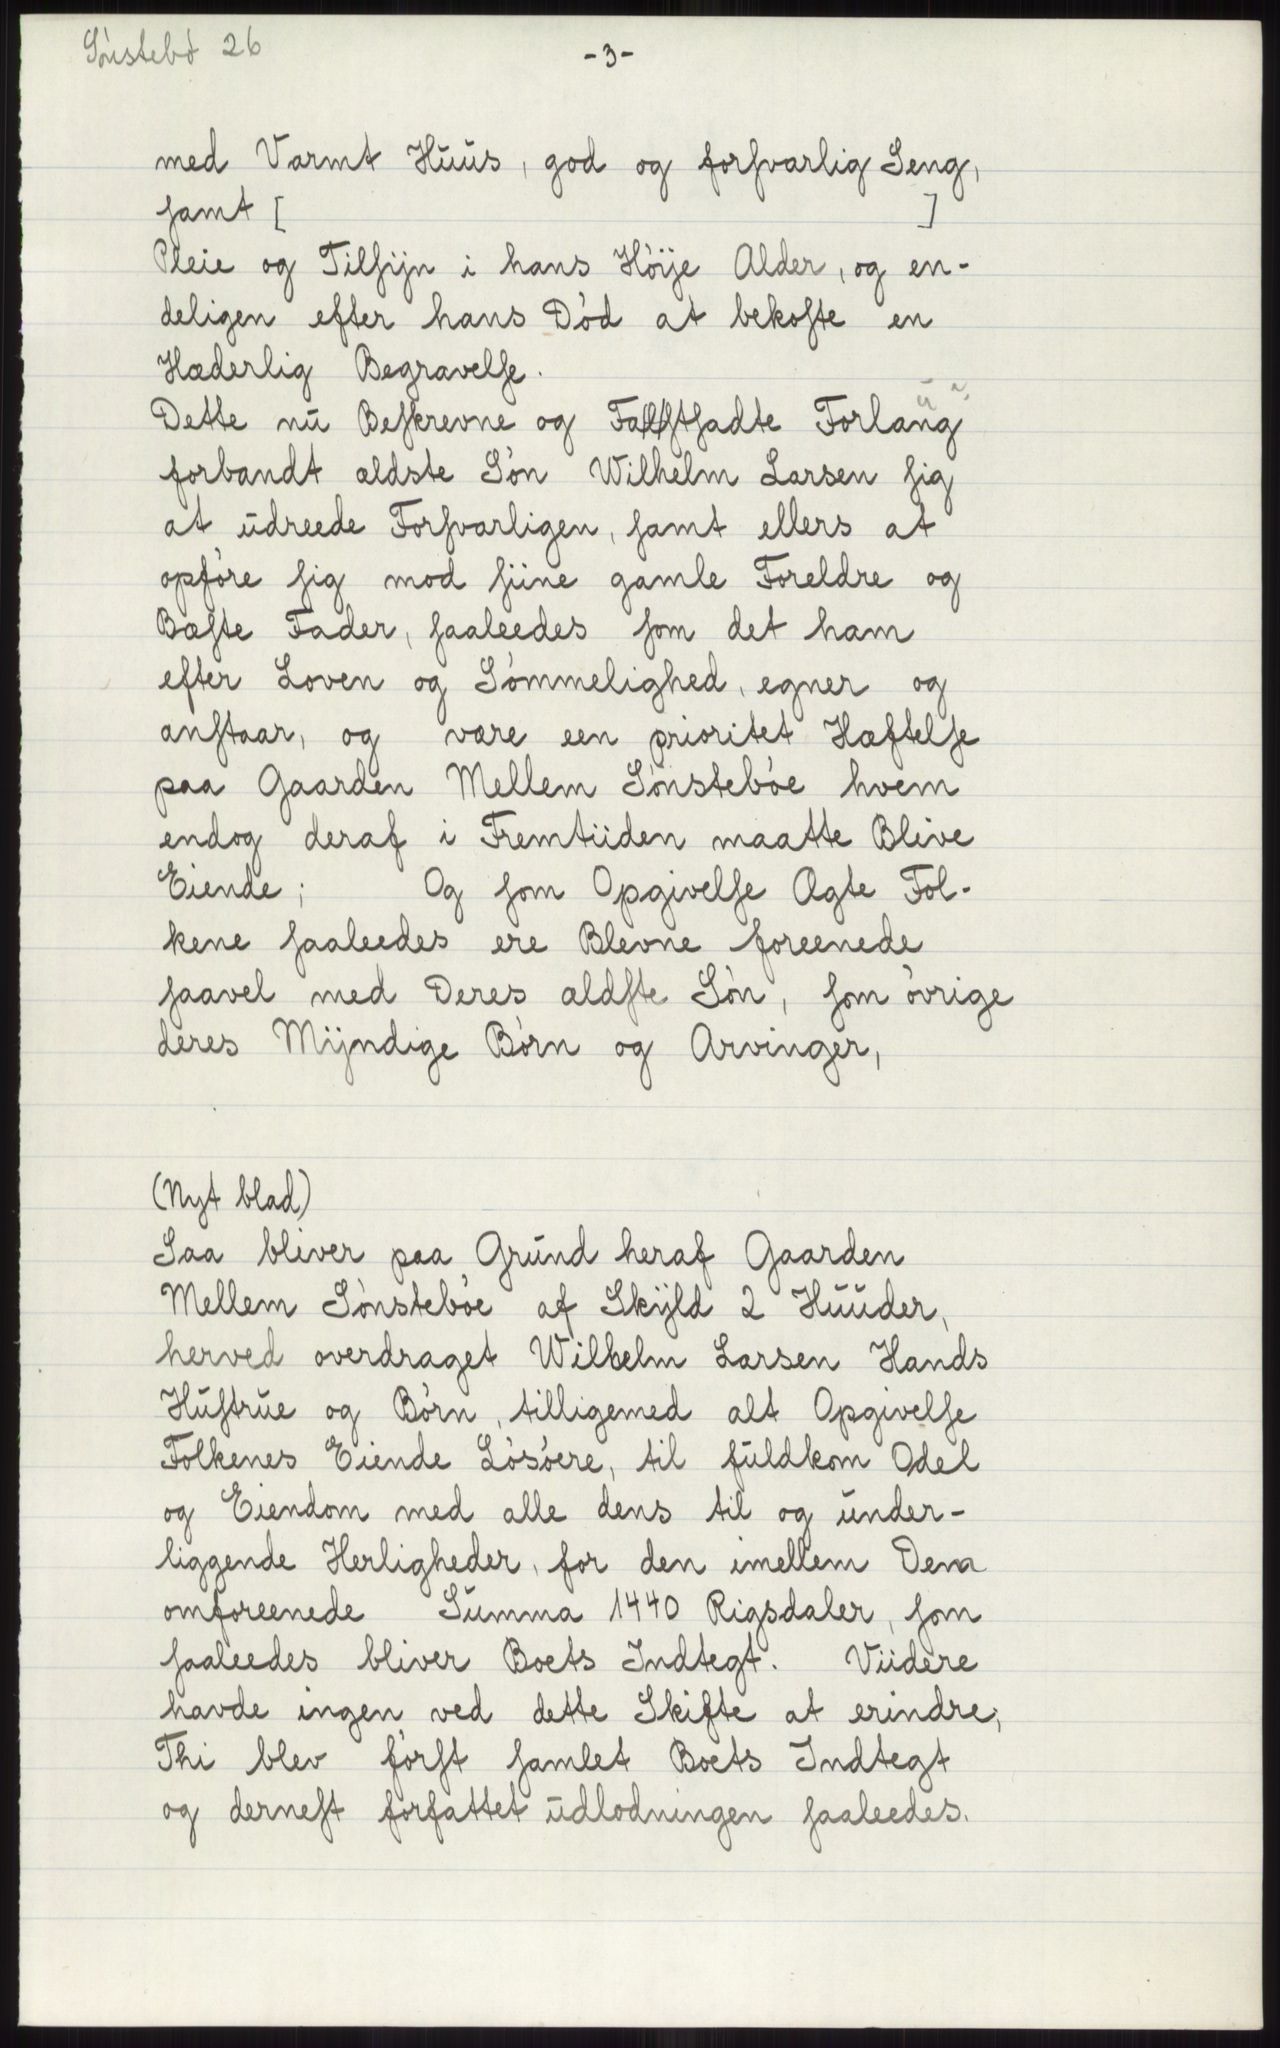 Sónstebó 26
-3-
med Varmt Huus, god og forsvarlig Seng,
samt [ ]
Pleie og Tilsijn i hans Höije Alder, og en-
deligen efter hans Död at bekoste en
Hæderlig Begravelse.
Dette nu Beskrevne og Fastsadte Forlang
forbandt ældste Sön Wilhelm Larsen sig
at udreede Forsvarligen, samt ellers at
opföre sig mod siine gamle Foreldre og
Bæste Fader, saaleedes som det ham
efter Loven og Sömmelighed, egner og
anstaar, og være een prioritet Hæftelse
paa Gaarden Mellem Sönsteböe hvem
endog deraf i Fremtiiden maatte Blive
Eiende; Og som Opgivelse Ægte Fol-
kene saaleedes ere Blevne foreenede
saavel med Deres ældste Sön, som övrige
deres Mijndige Börn og Arvinger,
(Nyt blad)
Saa bliver paa Grund heraf Gaarden
Mellem Sönsteböe af Skijld 2 Huuder,
herved overdraget Wilhelm Larsen Hands
Hustrue og Börn, tilligemed alt Opgivelse
Folkenes Eiende Lösöere, til fuldkom Odel
og Eiendom med alle dens til og under-
liggende Herligheder, for den imellem Dem
omforeenede Summa 1440 Rigsdaler, som
saaleedes bliver Boets Indtegt. Viidere
havde ingen ved dette Skifte at erindre;
Thi blev först samlet Boets Indtegt
og dernest forfattet udlodningen saaleedes.